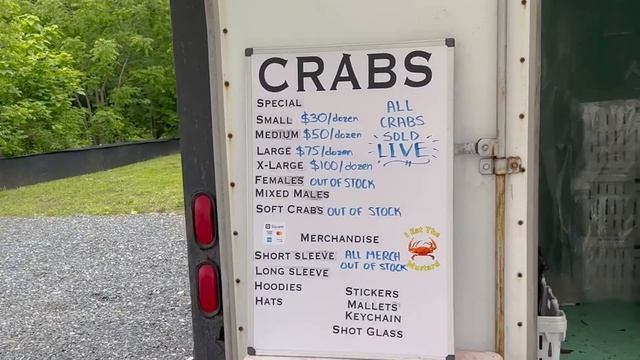 CRABS
SPECIAL
SMALL $30/dozen
MEDIUM $50/dozen
LARGE $75/dozen
X-LARGE $100/dozen
ALL
CRABS
SOLD
LIVE
FEMALES OUT OF STOCK
MIXED MALES
SOFT CRABS OUT OF STOCK
Square
MERCHANDISE
I Eat The
Mustard
SHORT SLEEVE ALL MERCH
OUT OF STOCK
LONG SLEEVE
HOODIES
HATS
STICKERS
MALLETS
KEYCHAIN
SHOT GLASS